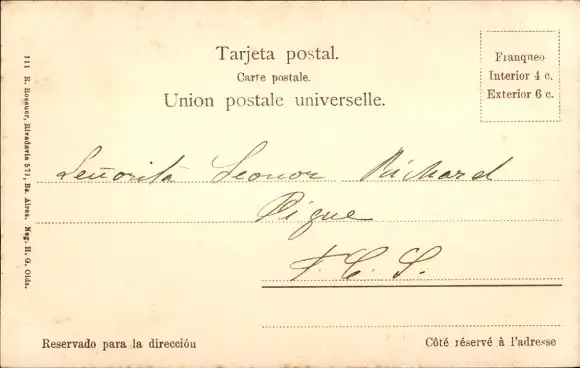 Tarjeta postal.
Carte postale.
Union postale universelle.
Franqueo
Interior 4 c.
Exterior 6 c.
111 R. Rosauer, Rivadavia 571, Bs. Aires. Neg. H. G. Olds.
Señorita Leonor Richard
Pigue
F. C. S.
Reservado para la dirección
Côté réservé à l'adresse